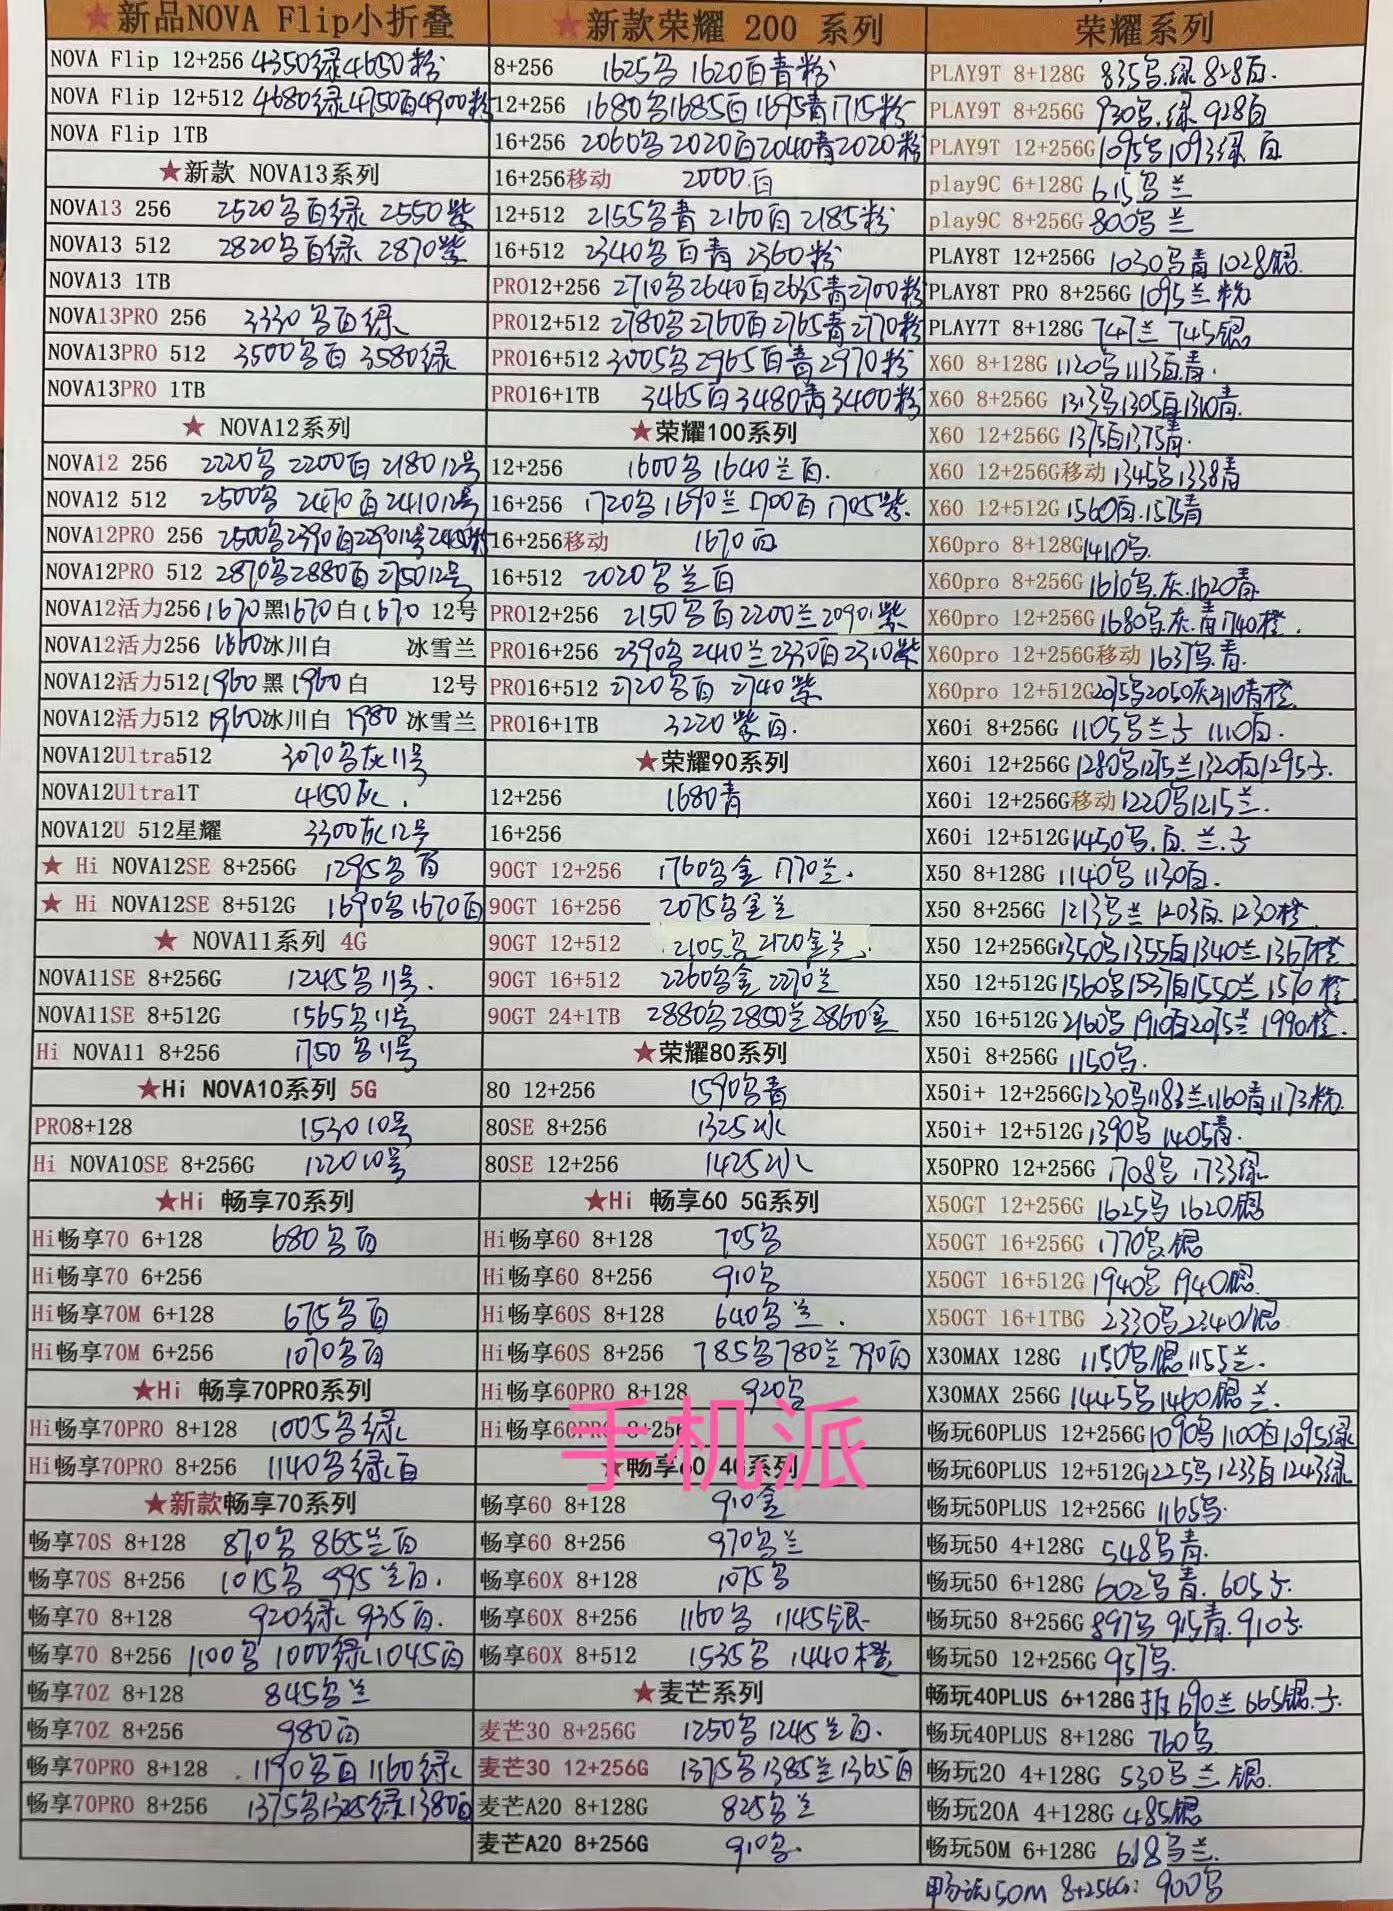 ★新品NOVA Flip小折叠
NOVA Flip 12+256 4350绿4650粉
NOVA Flip 12+512 4680绿4750白4900粉
NOVA Flip 1TB
★新款 NOVA13系列
NOVA13 256 2520乌白绿 2550紫
NOVA13 512 2820乌白绿 2870紫
NOVA13 1TB
NOVA13PRO 256 3330乌白绿
NOVA13PRO 512 3500乌白 3580绿
NOVA13PRO 1TB
★ NOVA12系列
NOVA12 256 2220乌 2200白 2180 12号
NOVA12 512 2500乌 2470白 2410 12号
NOVA12PRO 256 2500乌2390白2290 12号 粉
NOVA12PRO 512 2870乌2880白 2750 12号
NOVA12活力256 1670黑1670白1670 12号
NOVA12活力256 1660冰川白 冰雪兰
NOVA12活力512 1960黑 1960白 12号
NOVA12活力512 1960冰川白 1980冰雪兰
NOVA12Ultra512 3070乌灰 11号
NOVA12Ultra1T 4150灰.
NOVA12U 512星耀 3300灰 12号
★ Hi NOVA12SE 8+256G 1295乌白
★ Hi NOVA12SE 8+512G 1690乌1670白
★ NOVA11系列 4G
NOVA11SE 8+256G 1245乌 11号.
NOVA11SE 8+512G 1565乌 11号
Hi NOVA11 8+256 1750乌 11号
★Hi NOVA10系列 5G
PRO8+128 1530 10号
Hi NOVA10SE 8+256G 1220 10号
★Hi 畅享70系列
Hi畅享70 6+128 680乌白
Hi畅享70 6+256
Hi畅享70M 6+128 675乌白
Hi畅享70M 6+256 1070乌白
★Hi 畅享70PRO系列
Hi畅享70PRO 8+128 1005乌绿
Hi畅享70PRO 8+256 1140乌绿白
★新款畅享70系列
畅享70S 8+128 870乌 865兰白
畅享70S 8+256 1015乌 995兰白.
畅享70 8+128 920绿 935白.
畅享70 8+256 1100乌 1000绿1045白
畅享70Z 8+128 845乌兰
畅享70Z 8+256 980白
畅享70PRO 8+128 1190乌白 1160绿
畅享70PRO 8+256 1375乌1325绿1380白
★新款荣耀 200 系列
8+256 1625乌 1620白青粉
12+256 1680乌1685白1695青1715粉
16+256 2060乌2020白2040青2020粉
16+256移动 2000.白
12+512 2155乌青 2160白 2185粉
16+512 2340乌白青 2360粉
PRO12+256 2710乌2640白2635青2700粉
PRO12+512 2780乌2760白2765青2770粉
PRO16+512 3005乌2965白青2970粉
PRO16+1TB 3465白3480青3400粉
★荣耀100系列
12+256 1600乌 1640兰白.
16+256 1720乌1690兰1700白1705紫.
16+256移动 1670白
16+512 2020乌兰白
PRO12+256 2150乌白2200兰2090紫
PRO16+256 2390乌2410兰2330白2310紫
PRO16+512 2720乌白 2740紫
PRO16+1TB 3220紫白.
★荣耀90系列
12+256 1680青
16+256
90GT 12+256 1760乌金 1770兰.
90GT 16+256 2075乌金兰
90GT 12+512 2105乌 2120金兰.
90GT 16+512 2260乌金 2270兰
90GT 24+1TB 2880乌2850兰2860金
★荣耀80系列
80 12+256 1590乌青
80SE 8+256 1325冰
80SE 12+256 1425冰
★Hi 畅享60 5G系列
Hi畅享60 8+128 705乌
Hi畅享60 8+256 910乌
Hi畅享60S 8+128 640乌兰.
Hi畅享60S 8+256 785乌780兰790白
Hi畅享60PRO 8+128 920乌
Hi畅享60PRO 8+256
手机派
★畅享60 4G系列
畅享60 8+128 910金
畅享60 8+256 970乌兰
畅享60X 8+128 1075乌
畅享60X 8+256 1160乌 1145银
畅享60X 8+512 1535乌 1440橙
★麦芒系列
麦芒30 8+256G 1250乌 1245兰白.
麦芒30 12+256G 1375乌1385兰1365白
麦芒A20 8+128G 825乌兰
麦芒A20 8+256G 910乌.
荣耀系列
PLAY9T 8+128G 835乌.绿 828白.
PLAY9T 8+256G 930乌.绿 928白
PLAY9T 12+256G 1095乌1093绿 白
play9C 6+128G 615乌兰
play9C 8+256G 800乌兰
PLAY8T 12+256G 1030乌青1028银.
PLAY8T PRO 8+256G 1095兰粉
PLAY7T 8+128G 747兰 745银
X60 8+128G 1120乌1113白青.
X60 8+256G 1313乌1305白1310青.
X60 12+256G 1375白1375青.
X60 12+256G移动 1345乌1338青
X60 12+512G 1560白.1575青
X60pro 8+128G 1410乌.
X60pro 8+256G 1610乌.灰.1620青
X60pro 12+256G 1680乌灰.青1740橙.
X60pro 12+256G移动 1637乌.青.
X60pro 12+512G 2075乌2050灰2110青橙.
X60i 8+256G 1105乌兰子 1110白.
X60i 12+256G 1280乌1275兰1320白1295子.
X60i 12+256G移动 1220乌1215兰.
X60i 12+512G 1450乌.白.兰.子
X50 8+128G 1140乌 1130白.
X50 8+256G 1213乌兰 1203白.1230橙
X50 12+256G 1350乌1355白1340兰1367橙
X50 12+512G 1560乌1537白1550兰1570橙
X50 16+512G 2160乌 1910白2075兰 1990橙.
X50i 8+256G 1150乌.
X50i+ 12+256G 1230乌1183兰1160青1173粉.
X50i+ 12+512G 1390乌 1405青.
X50PRO 12+256G 1708乌 1733绿
X50GT 12+256G 1625乌 1620银
X50GT 16+256G 1770乌银
X50GT 16+512G 1940乌 1940银.
X50GT 16+1TBG 2330乌2340银
X30MAX 128G 1150乌银1155兰.
X30MAX 256G 1445乌1460银兰.
畅玩60PLUS 12+256G 1090乌1100白1095绿
畅玩60PLUS 12+512G 1225乌1233白1243绿
畅玩50PLUS 12+256G 1165乌.
畅玩50 4+128G 548乌青.
畅玩50 6+128G 602乌青.605子.
畅玩50 8+256G 897乌 915青.910子.
畅玩50 12+256G 957乌.
畅玩40PLUS 6+128G 690兰 665银.子.
畅玩40PLUS 8+128G 760乌
畅玩20 4+128G 530乌兰银.
畅玩20A 4+128G 485银
畅玩50M 6+128G 618乌兰.
畅玩50M 8+256G: 900乌